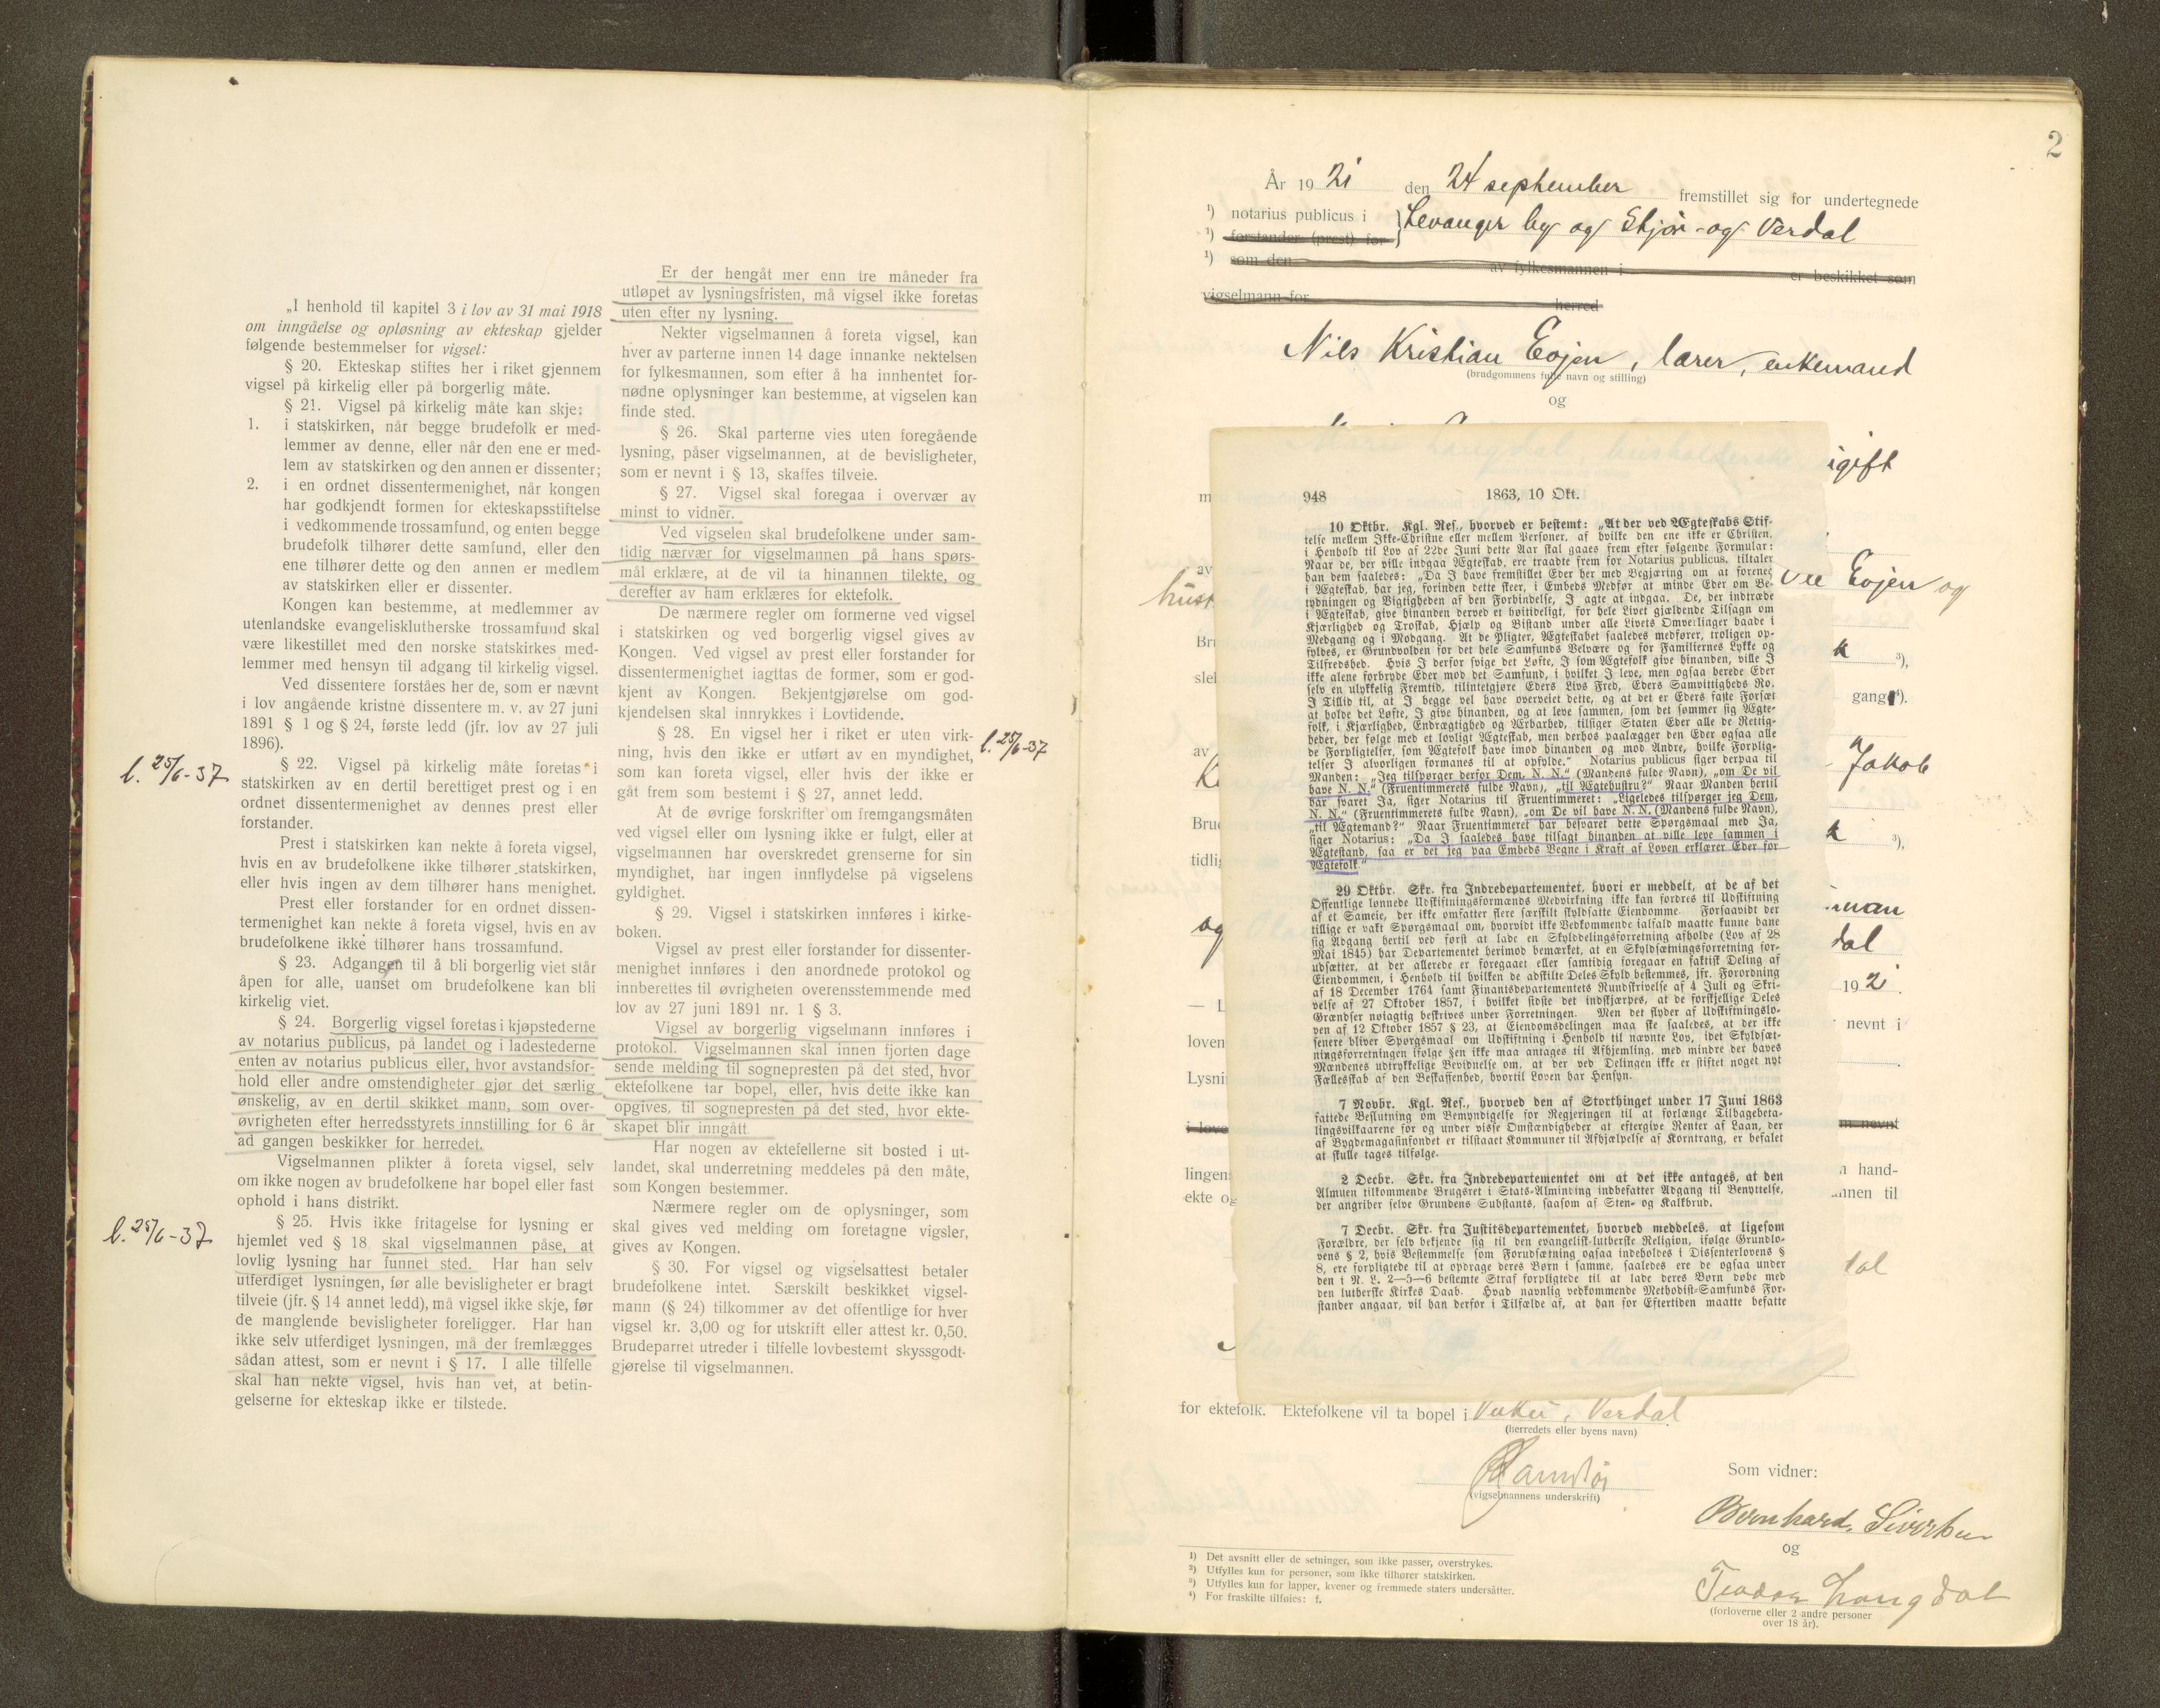 „I henhold til kapitel 3 i lov av 31 mai 1918
om inngåelse og opløsning av ekteskap gjelder
følgende bestemmelser for vigsel:
§ 20. Ekteskap stiftes her i riket gjennem
vigsel på kirkelig eller på borgerlig måte.
§ 21. Vigsel på kirkelig måte kan skje:
1. i statskirken, når begge brudefolk er med-
lemmer av denne, eller når den ene er med-
lem av statskirken og den annen er dissenter;
2. i en ordnet dissentermenighet, når kongen
har godkjendt formen for ekteskapsstiftelse
i vedkommende trossamfund, og enten begge
brudefolk tilhører dette samfund, eller den
ene tilhører dette og den annen er medlem
av statskirken eller er dissenter.
Kongen kan bestemme, at medlemmer av
utenlandske evangelisklutherske trossamfund skal
være likestillet med den norske statskirkes med-
lemmer med hensyn til adgang til kirkelig vigsel.
Ved dissentere forståes her de, som er nævnt
i lov angående kristne dissentere m. v. av 27 juni
1891 § 1 og § 24, første ledd (jfr. lov av 27 juli
1896).
l. 25/6-37
§ 22. Vigsel på kirkelig måte foretas i
statskirken av en dertil berettiget prest og i en
ordnet dissentermenighet av dennes prest eller
forstander.
Prest i statskirken kan nekte å foreta vigsel,
hvis en av brudefolkene ikke tilhører statskirken,
eller hvis ingen av dem tilhører hans menighet.
Prest eller forstander for en ordnet dissen-
termenighet kan nekte å foreta vigsel, hvis en av
brudefolkene ikke tilhører hans trossamfund.
§ 23. Adgangen til å bli borgerlig viet står
åpen for alle, uanset om brudefolkene kan bli
kirkelig viet.
§ 24. Borgerlig vigsel foretas i kjøpstederne
av notarius publicus, på landet og i ladestederne
enten av notarius publicus eller, hvor avstandsfor-
hold eller andre omstendigheter gjør det særlig
ønskelig, av en dertil skikket mann, som over-
øvrigheten efter herredsstyrets innstilling for 6 år
ad gangen beskikker for herredet.
Vigselmannen plikter å foreta vigsel, selv
om ikke nogen av brudefolkene har bopel eller fast
ophold i hans distrikt.
l. 25/6-37
§ 25. Hvis ikke fritagelse for lysning er
hjemlet ved § 18 skal vigselmannen påse, at
lovlig lysning har funnet sted. Har han selv
utferdiget lysningen, før alle bevisligheter er bragt
tilveie (jfr. § 14 annet ledd), må vigsel ikke skje, før
de manglende bevisligheter foreligger. Har han
ikke selv utferdiget lysningen, må der fremlægges
sådan attest, som er nevnt i § 17. I alle tilfelle
skal han nekte vigsel, hvis han vet, at betin-
gelserne for ekteskap ikke er tilstede.
Er der hengåt mer enn tre måneder fra
utløpet av lysningsfristen, må vigsel ikke foretas
uten efter ny lysning.
Nekter vigselmannen å foreta vigsel, kan
hver av parterne innen 14 dage innanke nektelsen
for fylkesmannen, som efter å ha innhentet for-
nødne oplysninger kan bestemme, at vigselen kan
finde sted.
§ 26. Skal parterne vies uten foregående
lysning, påser vigselmannen, at de bevisligheter,
som er nevnt i § 13, skaffes tilveie.
§ 27. Vigsel skal foregaa i overvær av
minst to vidner.
Ved vigselen skal brudefolkene under sam-
tidig nærvær for vigselmannen på hans spørs-
mål erklære, at de vil ta hinannen tilekte, og
derefter av ham erklæres for ektefolk.
De nærmere regler om formerne ved vigsel
i statskirken og ved borgerlig vigsel gives av
Kongen. Ved vigsel av prest eller forstander for
dissentermenighet iagttas de former, som er god-
kjent av Kongen. Bekjentgjørelse om god-
kjendelsen skal innrykkes i Lovtidende.
§ 28. En vigsel her i riket er uten virk-
ning, hvis den ikke er utført av en myndighet,
som kan foreta vigsel, eller hvis der ikke er
gåt frem som bestemt i § 27, annet ledd.
l. 25/6-37
At de øvrige forskrifter om fremgangsmåten
ved vigsel eller om lysning ikke er fulgt, eller at
vigselmannen har overskredet grenserne for sin
myndighet, har ingen innflydelse på vigselens
gyldighet.
§ 29. Vigsel i statskirken innføres i kirke-
boken.
Vigsel av prest eller forstander for dissenter-
menighet innføres i den anordnede protokol og
innberettes til øvrigheten overensstemmende med
lov av 27 juni 1891 nr. 1 § 3.
Vigsel av borgerlig vigselmann innføres i
protokol. Vigselmannen skal innen fjorten dage
sende melding til sognepresten på det sted, hvor
ektefolkene tar bopel, eller, hvis dette ikke kan
opgives, til sognepresten på det sted, hvor ekte-
skapet blir inngått.
Har nogen av ektefellerne sit bosted i ut-
landet, skal underretning meddeles på den måte,
som Kongen bestemmer.
Nærmere regler om de oplysninger, som
skal gives ved melding om foretagne vigsler,
gives av Kongen.
§ 30. For vigsel og vigselsattest betaler
brudefolkene intet. Særskilt beskikket vigsel-
mann (§ 24) tilkommer av det offentlige for hver
vigsel kr. 3,00 og for utskrift eller attest kr. 0,50.
Brudeparret utreder i tilfelle lovbestemt skyssgodt-
gjørelse til vigselmannen.
2
År 1921 den 24 september fremstillet sig for undertegnede
¹) notarius publicus i } Levanger by og Stjør- og Verdal
¹) forstander (prest) for
¹) som den av fylkesmannen i er beskikket som
vigselmann for herred
Nils Kristian Eojen, lærer, enkemand
(brudgommens fulle navn og stilling)
og
igift
m
av
Eojen og
hust
Br
k ³),
slek
gang ⁴).
av
Jakob
K
Bru
k ³),
tidlig
man
og
dal
1921.
— L
nevnt i
loven
Lysni
i love
m nevnt
lingen
n hand-
ekte og
nnen til
dal
948 1863, 10 Okt.
10 Oktbr. Kgl. Res., hvorved er bestemt: „At der ved Ægteskabs Stif-
telse mellem Ikke-Christne eller mellem Personer, af hvilke den ene ikke er Christen,
i Henhold til Lov af 22de Juni dette Aar skal gaaes frem efter følgende Formular:
Naar de, der ville indgaa Ægteskab, ere traadte frem for Notarius publicus, tiltaler
han dem saaledes: „Da I have fremstillet Eder her med Begjæring om at forenes
i Ægteskab, har jeg, forinden dette skeer, i Embeds Medfør at minde Eder om Be-
tydningen og Vigtigheden af den Forbindelse, I agte at indgaa. De, der indtræde
i Ægteskab, give hinanden derved et høitideligt, for hele Livet gjældende Tilsagn om
Kjærlighed og Troskab, Hjælp og Bistand under alle Livets Omvexlinger baade i
Medgang og i Modgang. At de Pligter, Ægteskabet saaledes medfører, troligen op-
fyldes, er Grundvolden for det hele Samfunds Velvære og for Familiernes Lykke og
Tilfredshed. Hvis I derfor svige det Løfte, I som Ægtefolk give hinanden, ville I
ikke alene forbryde Eder mod det Samfund, i hvilket I leve, men ogsaa berede Eder
selv en ulykkelig Fremtid, tilintetgjøre Eders Livs Fred, Eders Samvittigheds Ro.
I Tillid til, at I begge vel have overveiet dette, og at det er Eders faste Forsæt
at holde det Løfte, I give hinanden, og at leve sammen, som det sømmer sig Ægte-
folk, i Kjærlighed, Endrægtighed og Ærbarhed, tilsiger Staten Eder alle de Rettig-
heder, der følge med et lovligt Ægteskab, men derhos paalægger den Eder ogsaa alle
de Forpligtelser, som Ægtefolk have imod hinanden og mod Andre, hvilke Forplig-
telser I alvorligen formanes til at opfylde.” Notarius publicus siger derpaa til
Manden: „Jeg tilspørger derfor Dem, N. N.” (Mandens fulde Navn), „om De vil
have N. N.” (Fruentimmerets fulde Navn), „til Ægtehustru?” Naar Manden hertil
har svaret Ja, siger Notarius til Fruentimmeret: „Ligeledes tilspørger jeg Dem,
N. N.” (Fruentimmerets fulde Navn), „om De vil have N. N. (Mandens fulde Navn),
„til Ægtemand?” Naar Fruentimmeret har besvaret dette Spørgsmaal med Ja,
siger Notarius: „Da I saaledes have tilsagt hinanden at ville leve sammen i
Ægtestand, saa er det jeg paa Embeds Vegne i Kraft af Loven erklærer Eder for
Ægtefolk.”
29 Oktbr. Skr. fra Indredepartementet, hvori er meddelt, at de af det
Offentlige lønnede Udskiftningsformænds Medvirkning ikke kan fordres til Udskiftning
af et Sameie, der ikke omfatter flere særskilt skyldsatte Eiendomme. Forsaavidt der
tillige er vakt Spørgsmaal om, hvorvidt ikke Vedkommende ialfald maatte kunne bane
sig Adgang hertil ved først at lade en Skylddelingsforretning afholde (Lov af 28
Mai 1845) har Departementet herimod bemærket, at en Skyldsætningsforretning for-
udsætter, at der allerede er foregaaet eller samtidig foregaar en faktisk Deling af
Eiendommen, i Henhold til hvilken de adskilte Deles Skyld bestemmes, jfr. Forordning
af 18 December 1764 samt Finantsdepartementets Rundskrivelse af 4 Juli og Skri-
velse af 27 Oktober 1857, i hvilket sidste det indskjærpes, at de forskjellige Deles
Grændser nøiagtig beskrives under Forretningen. Men det flyder af Udskiftningslo-
ven af 12 Oktober 1857 § 23, at Eiendomsdelingen maa ske saaledes, at der ikke
senere bliver Spørgsmaal om Udskiftning i Henhold til nævnte Lov, idet Skyldsæt-
ningsforretningen ifølge §en ikke maa antages til Afhjemling, med mindre der haves
Mændenes udtrykkelige Bevidnelse om, at der ved Delingen ikke er stiftet noget nyt
Fællesskab af den Beskaffenhed, hvortil Loven har Hensyn.
7 Novbr. Kgl. Res., hvorved den af Storthinget under 17 Juni 1863
fattede Beslutning om Bemyndigelse for Regjeringen til at forlænge Tilbagebeta-
lingsvilkaarene for og under visse Omstændigheder at eftergive Renter af Laan, der
af Bygdemagasinfondet er tilstaaet Kommuner til Afhjælpelse af Korntrang, er befalet
at skulle tages tilfølge.
2 Decbr. Skr. fra Indredepartementet om at det ikke antages, at den
Almuen tilkommende Brugsret i Stats-Alminding indbefatter Adgang til Benyttelse,
der angriber selve Grundens Substants, saasom af Sten- og Kalkbrud.
7 Decbr. Skr. fra Justitsdepartementet, hvorved meddeles, at ligesom
Forældre, der selv bekjende sig til den evangelisk-lutherske Religion, ifølge Grundlo-
vens § 2, hvis Bestemmelse som Forudsætning ogsaa indeholdes i Dissenterlovens §
8, ere forpligtede til at opdrage deres Børn i samme, saaledes ere de ogsaa under
den i N. L. 2—5—6 bestemte Straf forpligtede til at lade deres Børn døbe med
den lutherske Kirkes Daab. Hvad navnlig vedkommende Methodist-Samfunds For-
stander angaar, vil han derfor i Tilfælde af, at han for Eftertiden maatte befatte
for ektefolk. Ektefolkene vil ta bopel i Vuku, Verdal
(herredets eller byens navn)
(vigselmannens underskrift)
Som vidner:
Bernhard
og
Teodor Langdal
(forloverne eller 2 andre personer
over 18 år).
¹) Det avsnitt eller de setninger, som ikke passer, overstrykes.
²) Utfylles kun for personer, som ikke tilhører statskirken.
³) Utfylles kun for lapper, kvener og fremmede staters undersåtter.
⁴) For fraskilte tilføies: f.